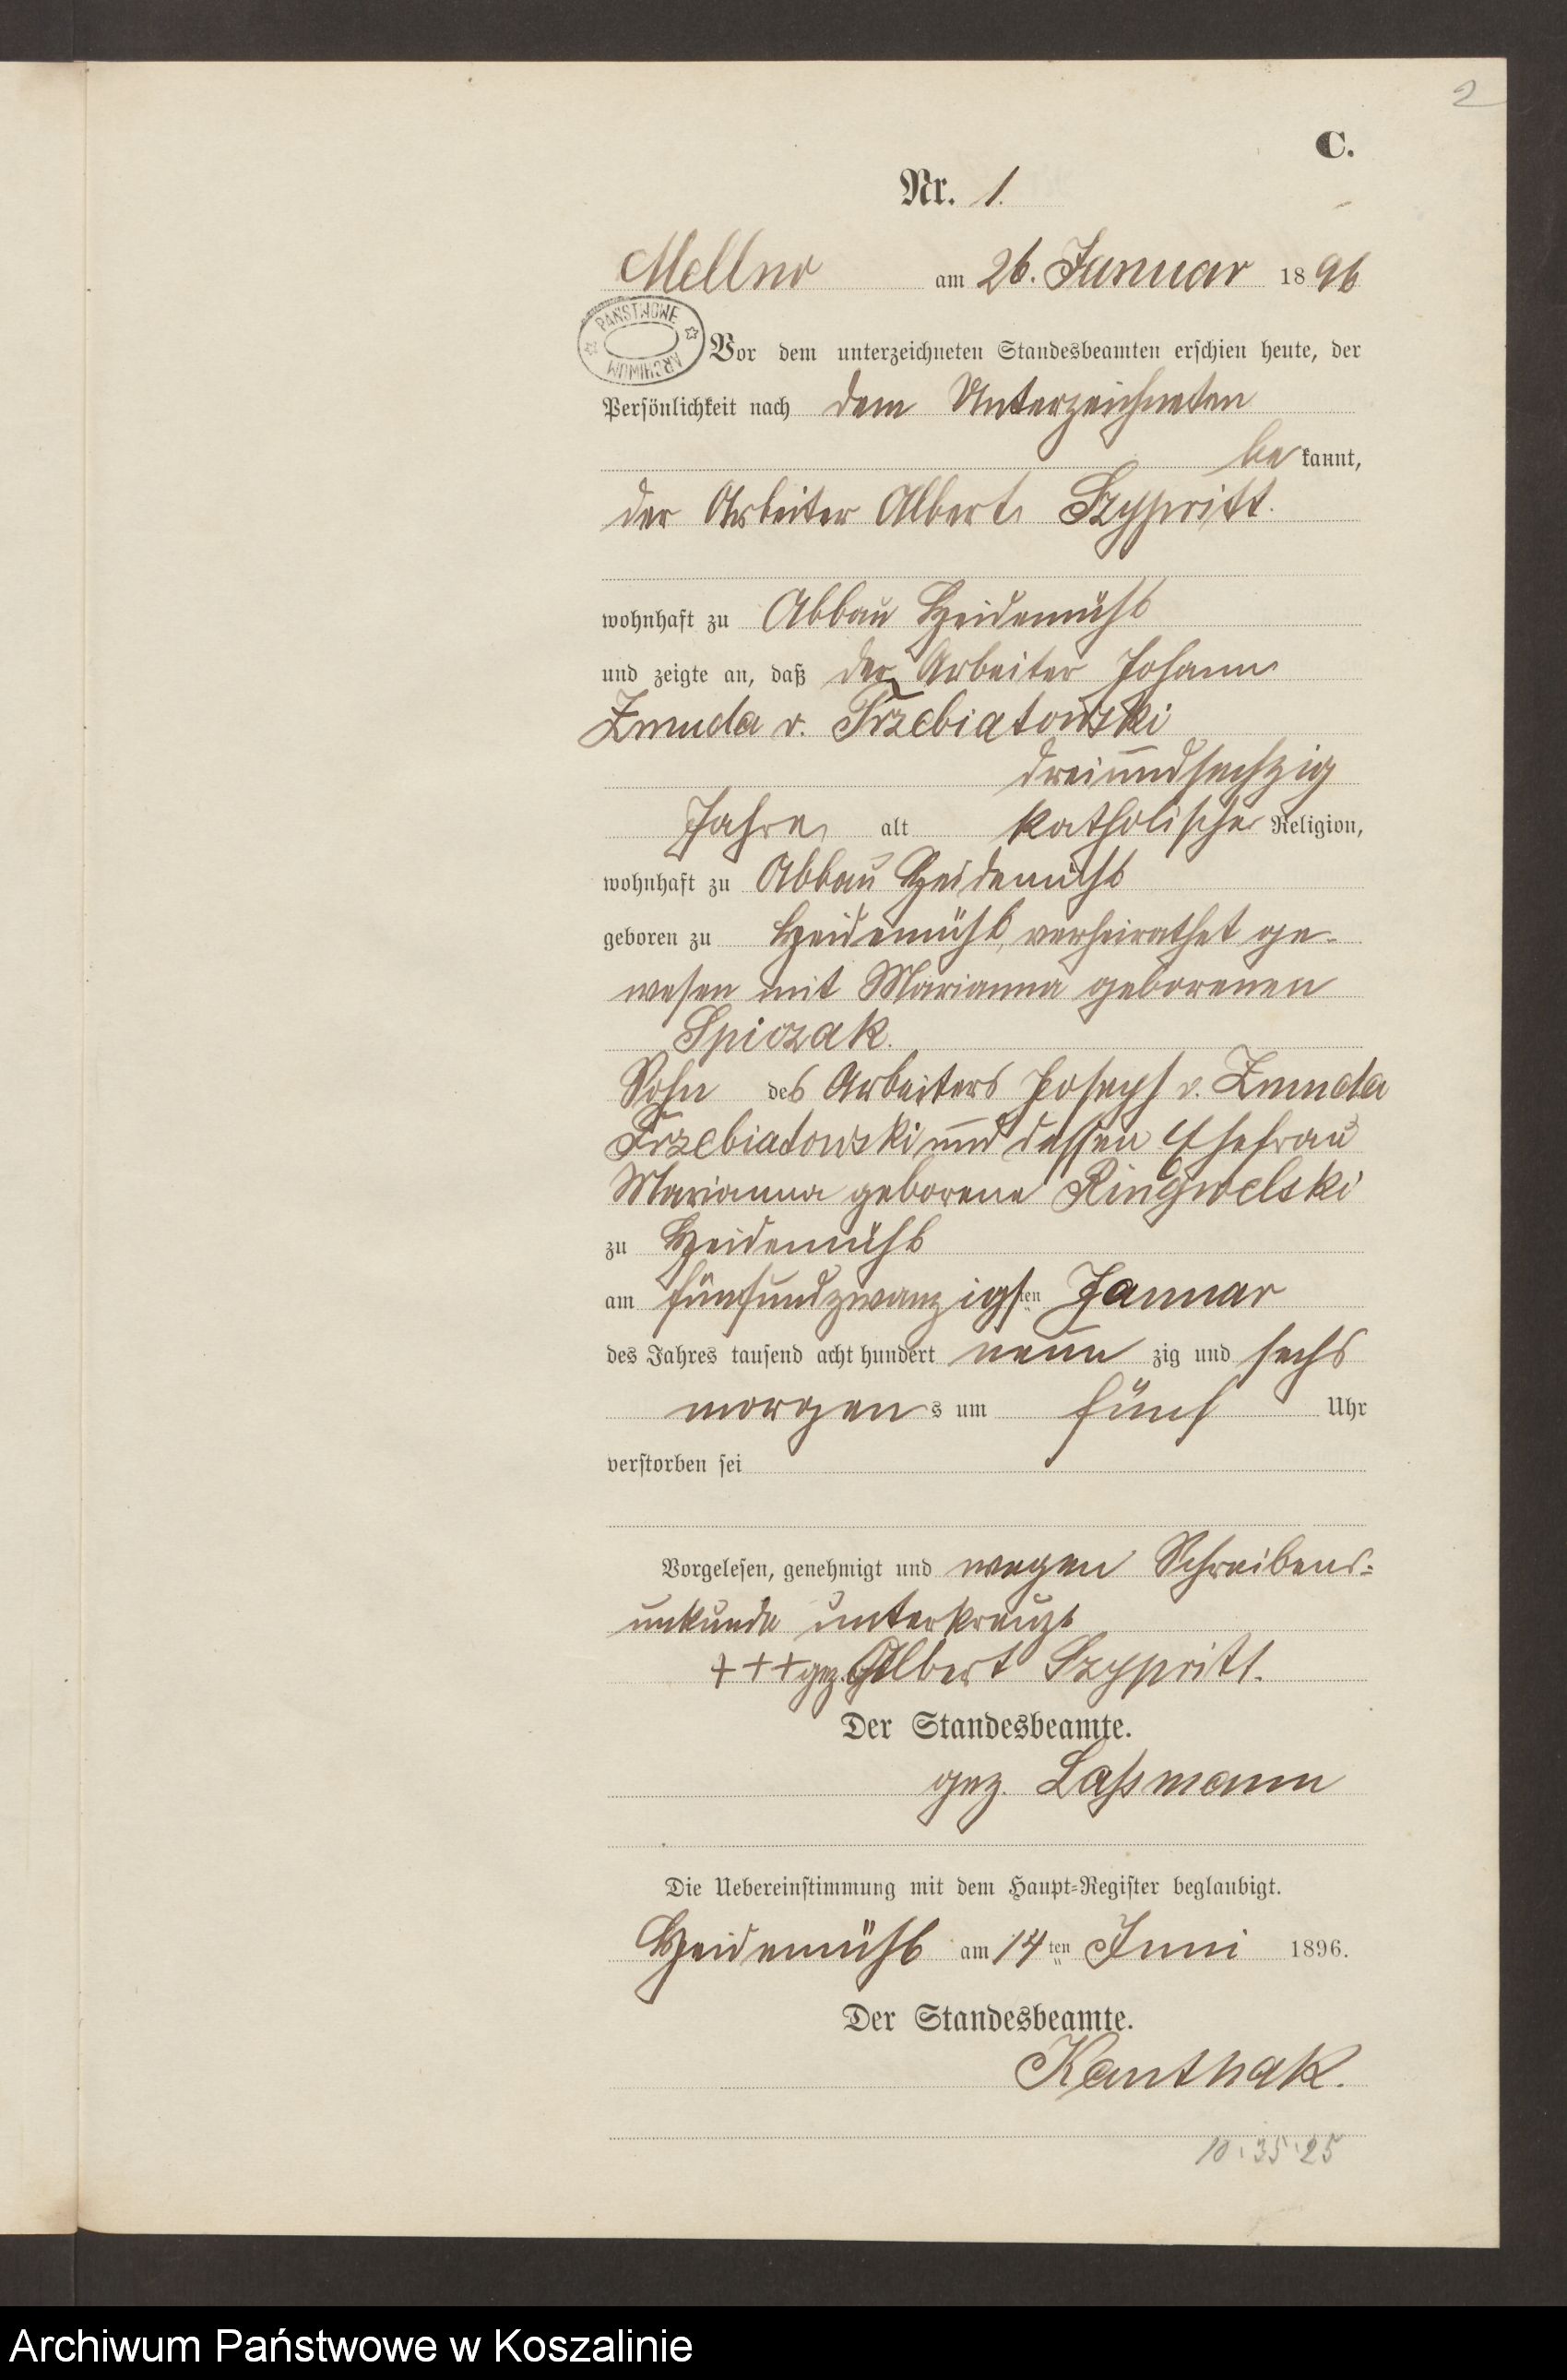 2
C.
Nr. 1.
Mellno am 26. Januar 1896
PAŃSTWOWE ARCHIWUM
Vor dem unterzeichneten Standesbeamten erschien heute, der
Persönlichkeit nach dem Unterzeichneten
be kannt,
der Arbeiter Albert Szypritt.
wohnhaft zu Abbau Heidemühl
und zeigte an, daß der Arbeiter Johann
Zmuda v. Trzebiatowski
dreiundsechzig
Jahre alt katholischer Religion,
wohnhaft zu Abbau Heidemühl
geboren zu Heidemühl, verheirathet ge-
wesen mit Marianna geborenen
Spiczak.
Sohn des Arbeiters Joseph v. Zmuda
Trzebiatowski und dessen Ehefrau
Marianna geborene Ringwelski
zu Heidemühl
am fünfundzwanzigsten Januar
des Jahres tausend acht hundert neun zig und sechs
morgen s um fünf Uhr
verstorben sei
Vorgelesen, genehmigt und wegen Schreibens-
unkunde unterkreuzt
+++ gez. Albert Szypritt.
Der Standesbeamte.
gez. Laßmann
Die Uebereinstimmung mit dem Haupt-Register beglaubigt.
Heidemühl am 14ten Juni 1896.
Der Standesbeamte.
Kanthak.
10.35.25
Archiwum Państwowe w Koszalinie